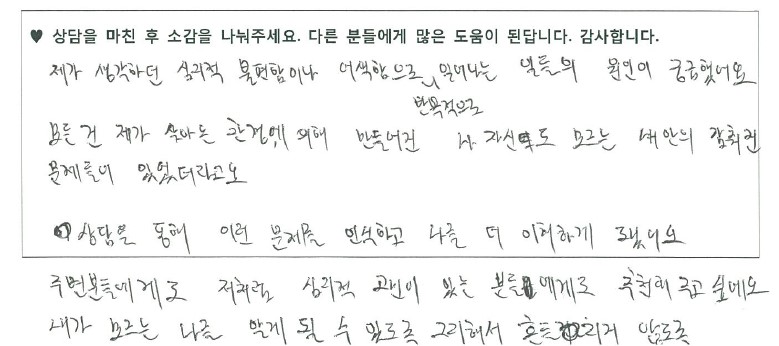 ♥ 상담을 마친 후 소감을 나눠주세요. 다른 분들에게 많은 도움이 된답니다. 감사합니다.
제가 생각하던 심리적 불편함이나 어색함으로 일어나는 일들의 원인이 궁금했어요
반복적으로
모든 건 제가 살아온 환경에 의해 만들어진 나 자신도 모르는 내 안의 감춰진
문제들이 있었더라고요
상담을 통해 이런 문제를 인식하고 나를 더 이해하게 됐어요
주변분들에게도 저처럼 심리적 고민이 있는 분들에게도 추천해 주고 싶네요
내가 모르는 나를 알게 될 수 있도록 그리해서 흔들리지 않도록